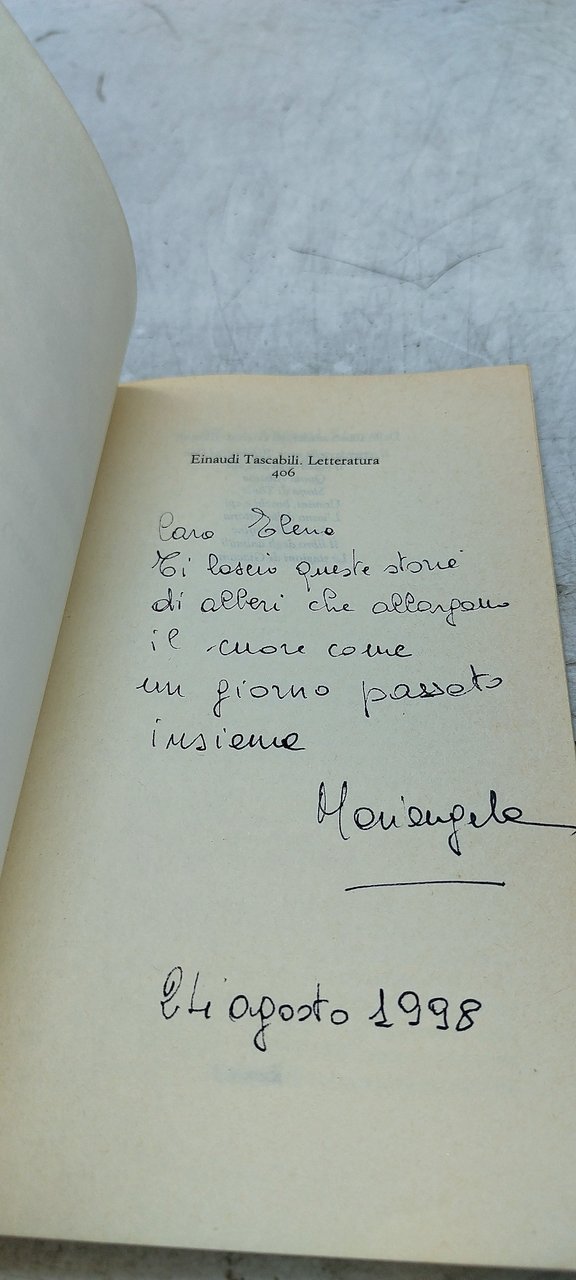 Einaudi Tascabili. Letteratura
406
Cara Elena
Ti lascio queste storie
di alberi che allargano
il cuore come
un giorno passato
insieme
Mariangela
24 agosto 1998